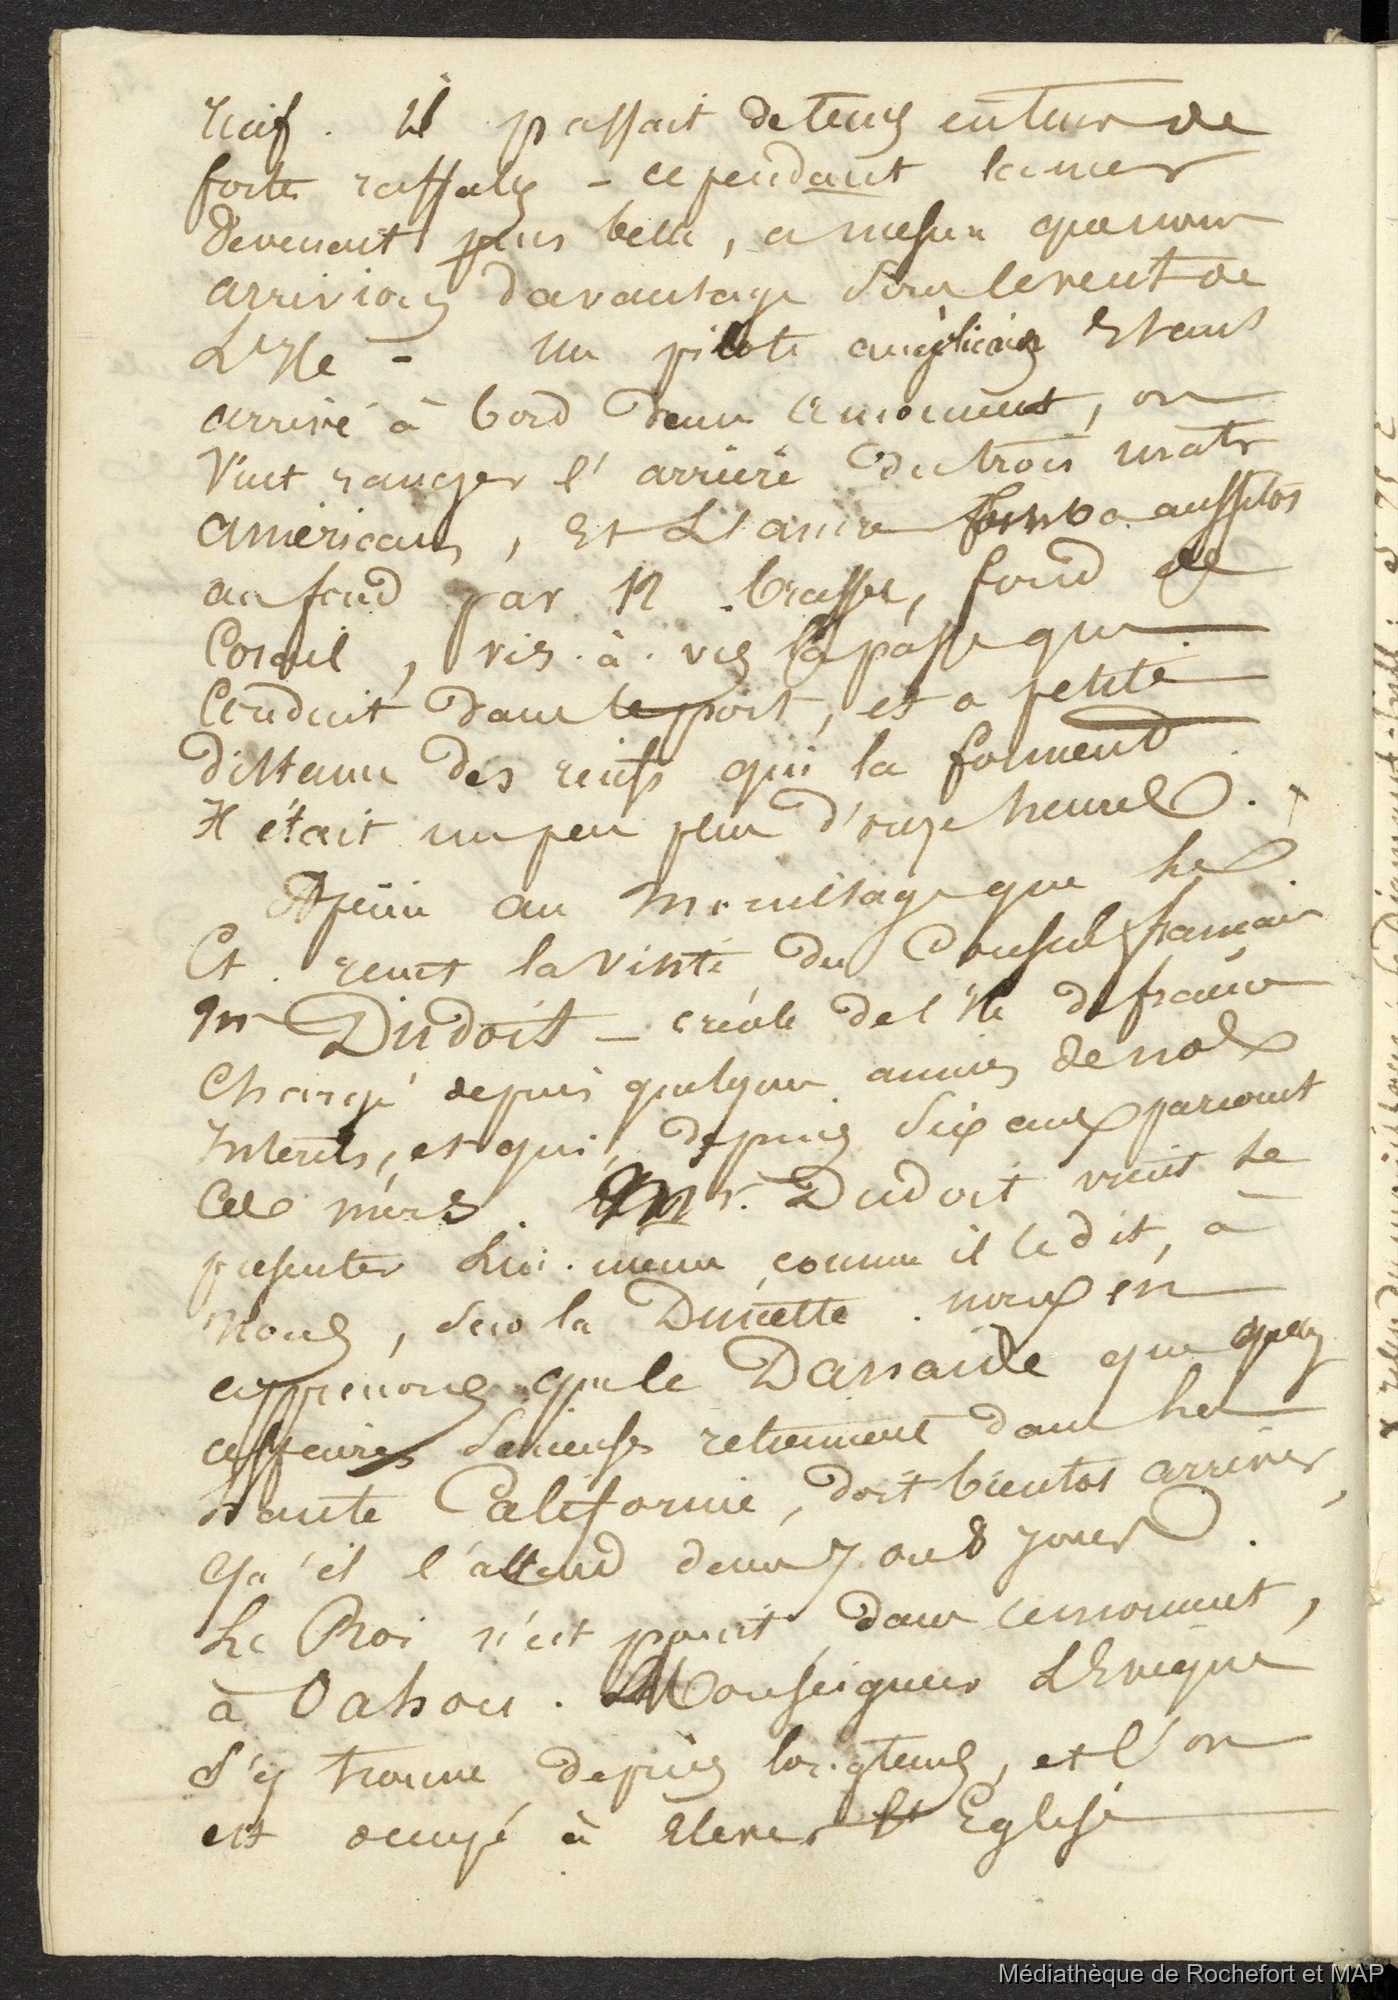 récif. Il passait de tems en tems de
fortes raffales - cependant la mer
devenait plus belle, a mesure que nous
arrivions davantage sous le vent de
L'Isle - Un pilote américain Etant
arrivé à bord dans ce moment, on
Vint ranger l'arrière du trois mats
américain, Et L'ancre tomba aussitos
au fond par 12 brasses, fond de
Corail, vis-à-vis la passe qui
Conduit dans le port, et a petite
distance des recifs qui la forment
Il était un peu plus d'onze heures.
Apeine au mouillage que le
Ct. recut la visite du Consul français
Mr Dudoit - créole de l'ile de france
Chargé depuis quelques années de nos
Interets, et qui, depuis dix ans parcourt
Ces mers. Mr. Dudoit vient se
presenter Lui-meme, comme il le dit, à
nous, sur la Dunette. nous en
apprenons que le Danaide que quelques
affaires serieuses retiennent dans la
haute Californie, doit bientos arriver,
qu'il l'attend dans 7 ou 8 jours.
Le Roi n'est point, dans ce moment,
à Oahou. Monseigneur L'Evêque
s'y trouve depuis longtems, et l'on
est occupé à Elever Eglise
Médiathèque de Rochefort et MAP